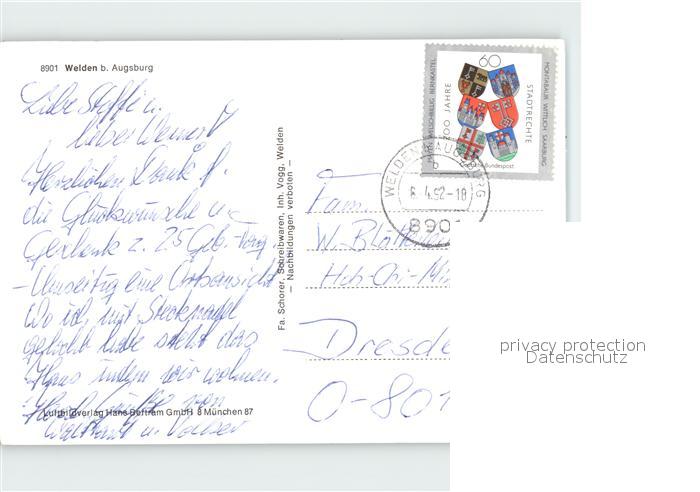 8901 Welden b. Augsburg
Liebe Steffi u.
lieber Werner!
Herzlichen Dank f.
die Glückwünsche u.
Geschenk z. 25 Geb. Tag.
- Umseitig eine Ortsansicht
Wo ich mit Stecknadel
gelocht habe steht das
Haus indem wir wohnen.
von
u. Volker
Luftbildverlag Hans Bertram GmbH 8 München 87
Fa. Schorer, Schreibwaren, Inh. Vogg, Welden
— Nachbildungen verboten —
60
700 JAHRE
STADTRECHTE
MONTABAUR WITTLICH SAARBURG
WELSCHBILLIG BERNKASTEL
Deutsche Bundespost
WELDEN AUGSBURG
b
6.4.92-18
8901
Fam.
W. 
Hoh-Chi-Mi
Dresde
O-801
privacy protection
Datenschutz